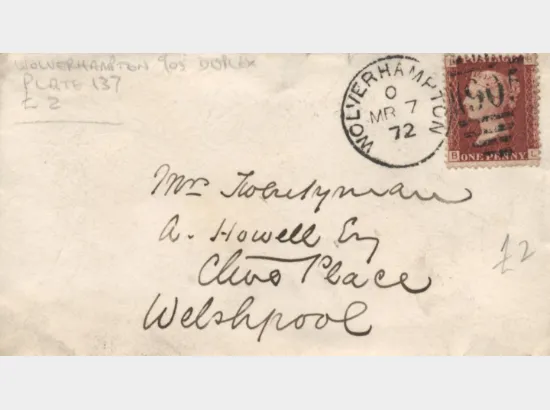 WOLVERHAMPTON 905 DUPLEX
PLATE 137
£2
WOLVERHAMPTON
O
MR 7
72
905
B ONE PENNY L
Mrs Twentyman
A. Howell Esq
Clive Place
Welshpool
£2